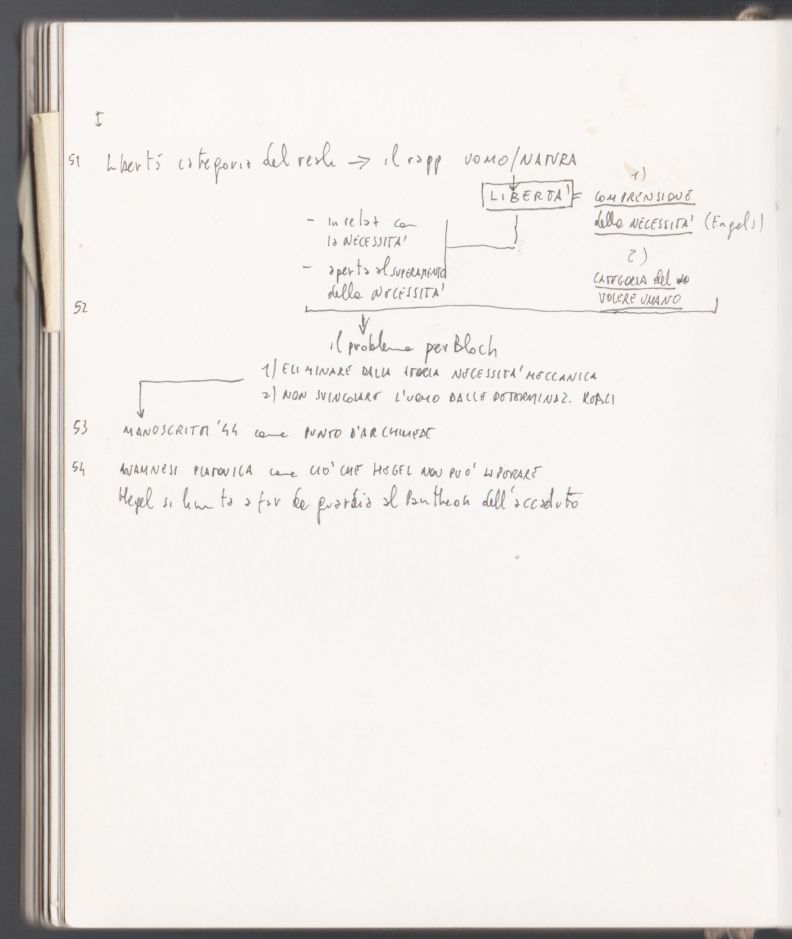 I
51 Libertà categoria del reale → il rapp UOMO/NATURA
LIBERTA' =
1)
COMPRENSIONE
della NECESSITA' (Engels)
- in relaz con
la NECESSITA'
- aperta al SUPERAMENTO
della NECESSITA'
2)
CATEGORIA del
VOLERE UMANO
52
il problema per Bloch
1) ELIMINARE DALLA STORIA NECESSITA' MECCANICA
2) NON SVINCOLARE L'UOMO DALLE DETERMINAZ. REALI
53 MANOSCRITTI '44 come PUNTO D'ARCHIMEDE
54 ANAMNESI PLATONICA come CIO' CHE HEGEL NON PUO' SUPERARE
Hegel si limita a far da guardia al Pantheon dell'accaduto